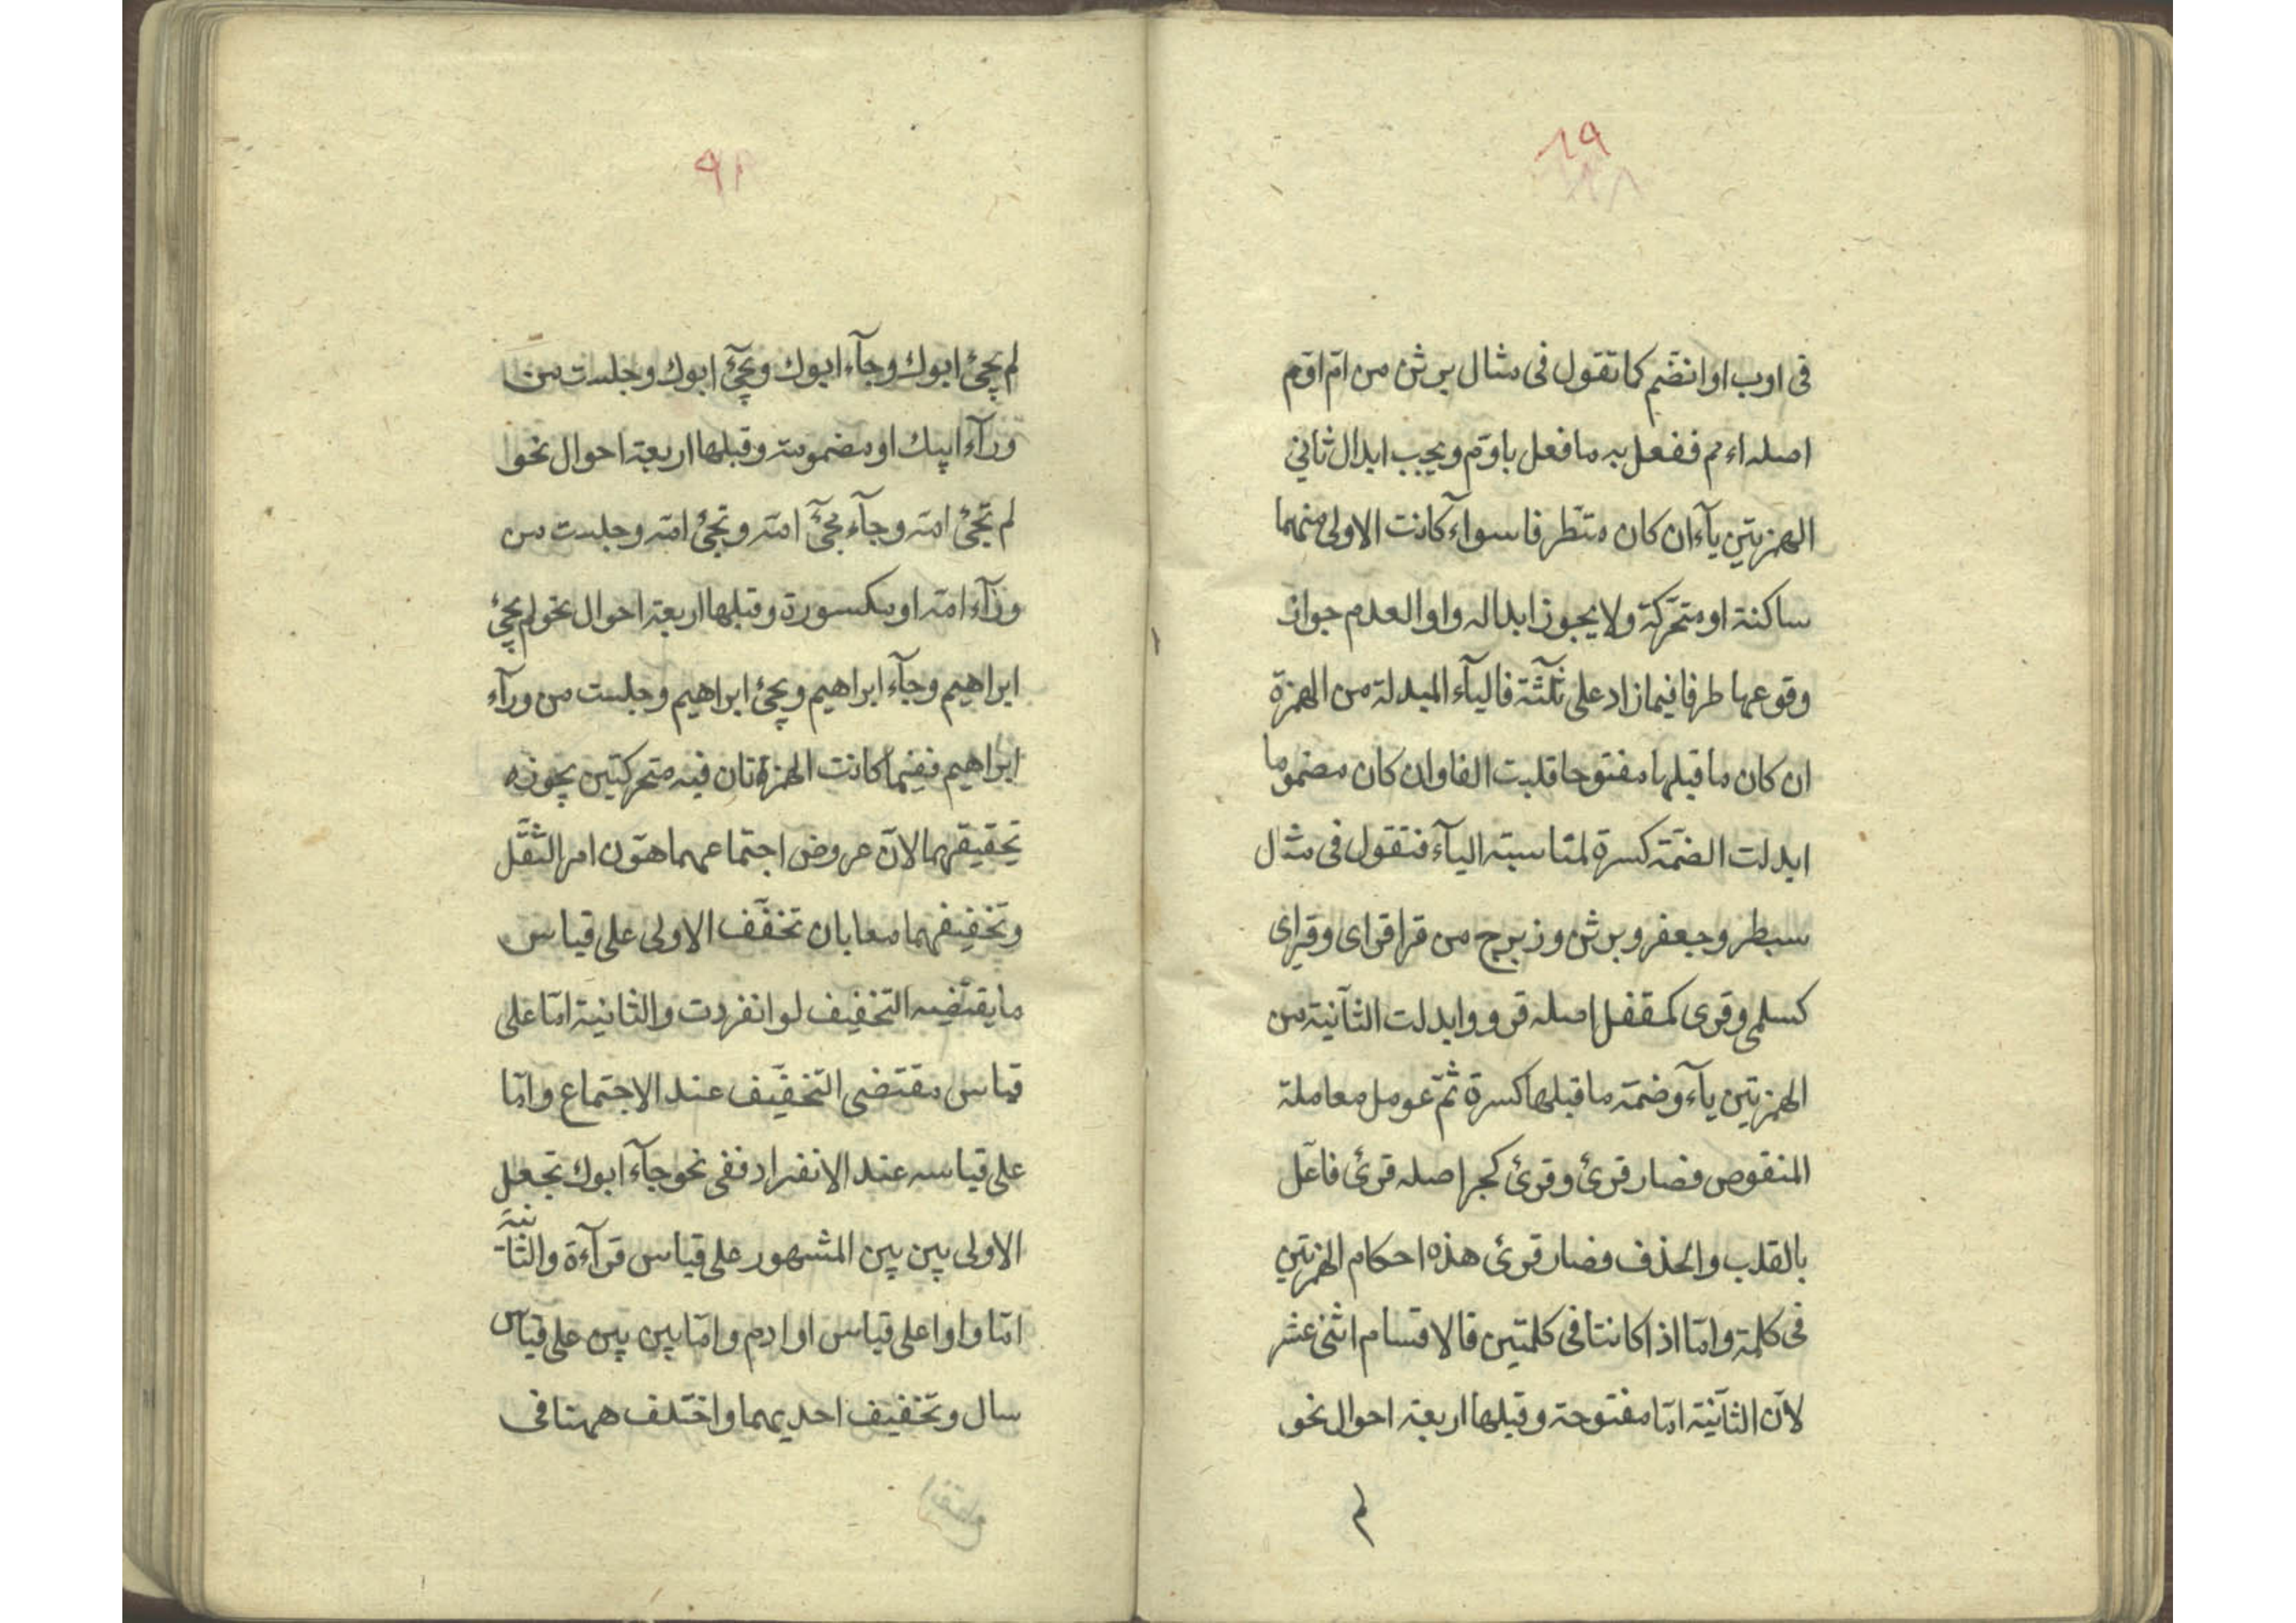 ٨٩
فی اوب او انضم کما تقول فی مثال برثن من ام اوم
اصله اءمم ففعل به ما فعل باوم ويجب ابدال ثانی
الهمزتين يآء ان کان متطرفا سواء کانت الاولی منهما
ساکنة او متحرکة ولا يجوز ابداله واوا لعدم جواز
وقوعها طرفا فيما زاد علی ثلثة فاليآء المبدلة من الهمزة
ان کان ما قبلها مفتوحا قلبت الفا وان کان مضموما
ابدلت الضمة کسرة لمناسبة اليآء فتقول فی مثال
سبطر وجعفر وبرثن وزبرج من قرا قرای وقرای
کسلمی وقری کمقفل اصله قروو ابدلت الثانية من
الهمزتين يآء وضمة ما قبلها کسرة ثم عومل معاملة
المنقوص فصار قرئ وقرئ کجر اصله قرئ فاعل
بالقلب والحذف فصار قرئ هذه احکام الهمزتين
فی کلمة واما اذا کانتا فی کلمتين فالاقسام اثنی عشر
لان الثانية اما مفتوحة وقبلها اربعة احوال نحو
لم
٩١
لم يجئ ابوك وجآء ابوك ويجئ ابوك وجلست من
ورآء ابيك او مضمومة وقبلها اربعة احوال نحو
لم تجئ امة وجآء تجئ امة وتجئ امة وجلست من
ورآء امة او مکسورة وقبلها اربعة احوال نحو لم يجئ
ابراهيم وجآء ابراهيم ويجئ ابراهيم وجلست من ورآء
ابراهيم ففيما کانت الهمزتان فيه متحرکتين يجوز
تحقيقهما لان عروض اجتماعهما هون امر الثقل
وتخفيفهما معا بان تخفف الاولی علی قياس
ما يقتضيه التخفيف لو انفردت والثانية اما علی
قياس مقتضی التخفيف عند الاجتماع واما
علی قياسه عند الانفراد ففی نحو جآء ابوك تجعل
الاولی بين بين المشهور علی قياس قرآءة والثانية
اما واوا علی قياس اوادم واما بين بين علی قياس
سال وتخفيف احديهما واختلف ههنا فی